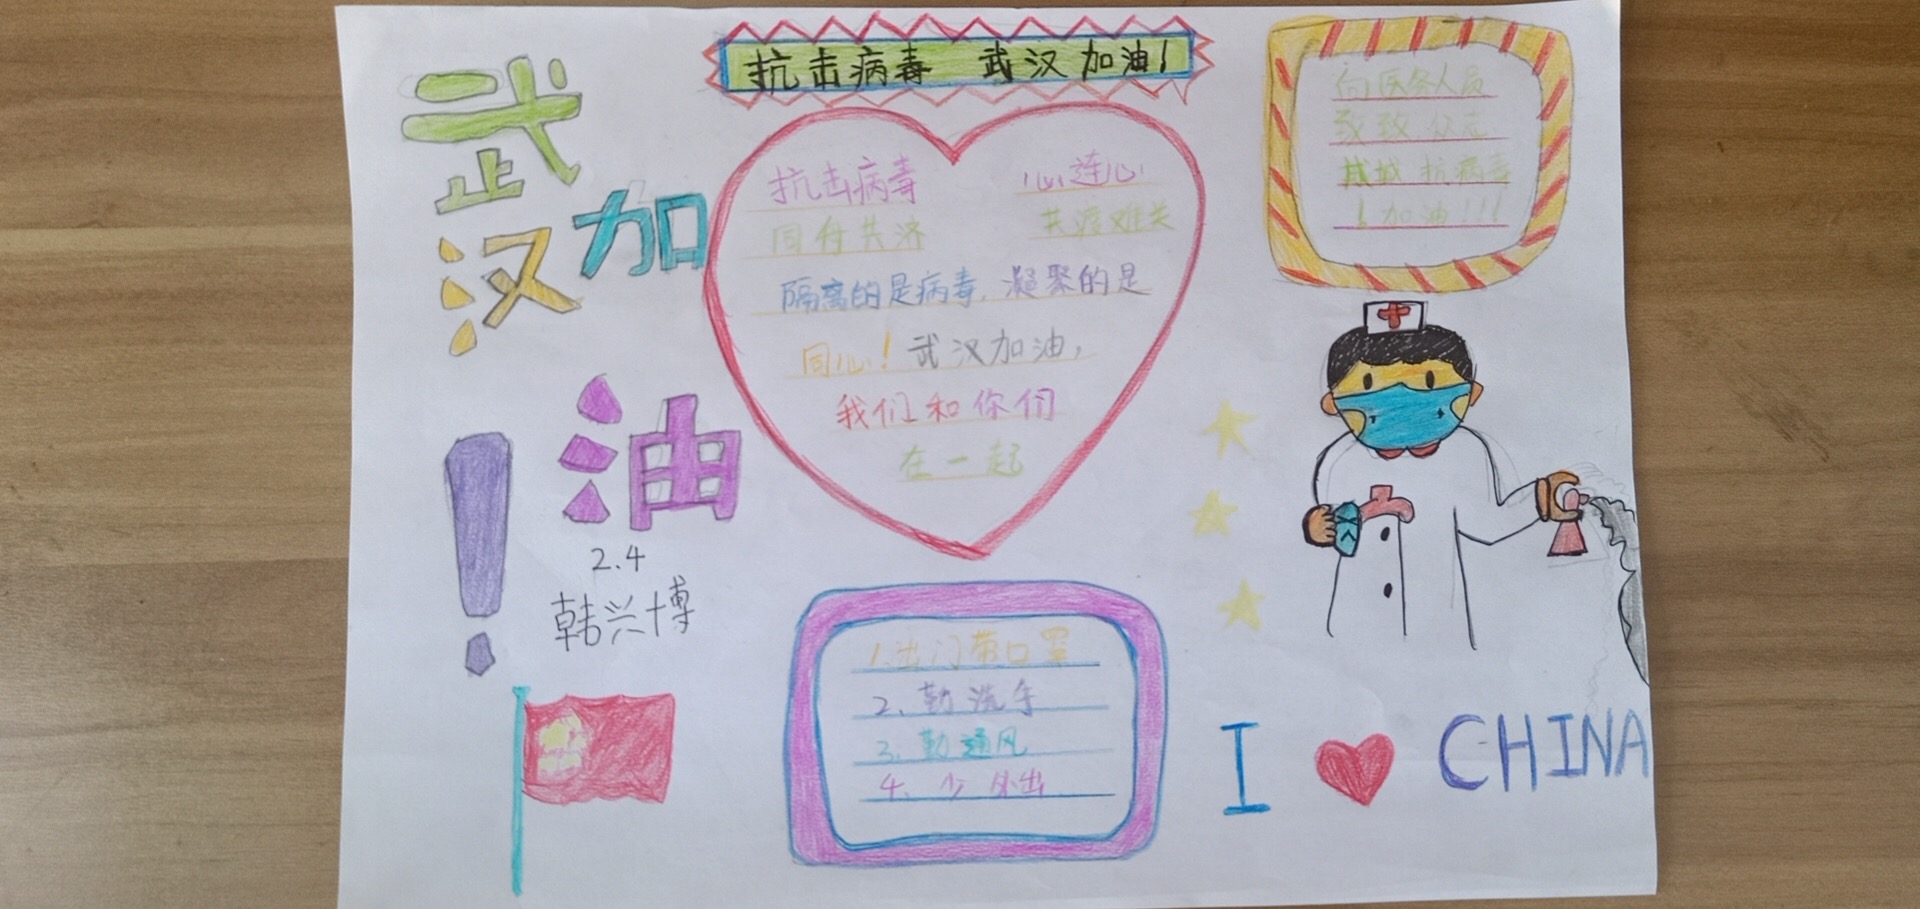 抗击病毒 武汉加油!
武
汉加
油
!
2.4
韩兴博
抗击病毒 心连心
同舟共济 共渡难关
隔离的是病毒,凝聚的是
同心!武汉加油,
我们和你们
在一起
向医务人员
致敬
抗病毒
!加油!!!
1.出门带口罩
2、勤洗手
3、勤通风
4、少外出
I CHINA